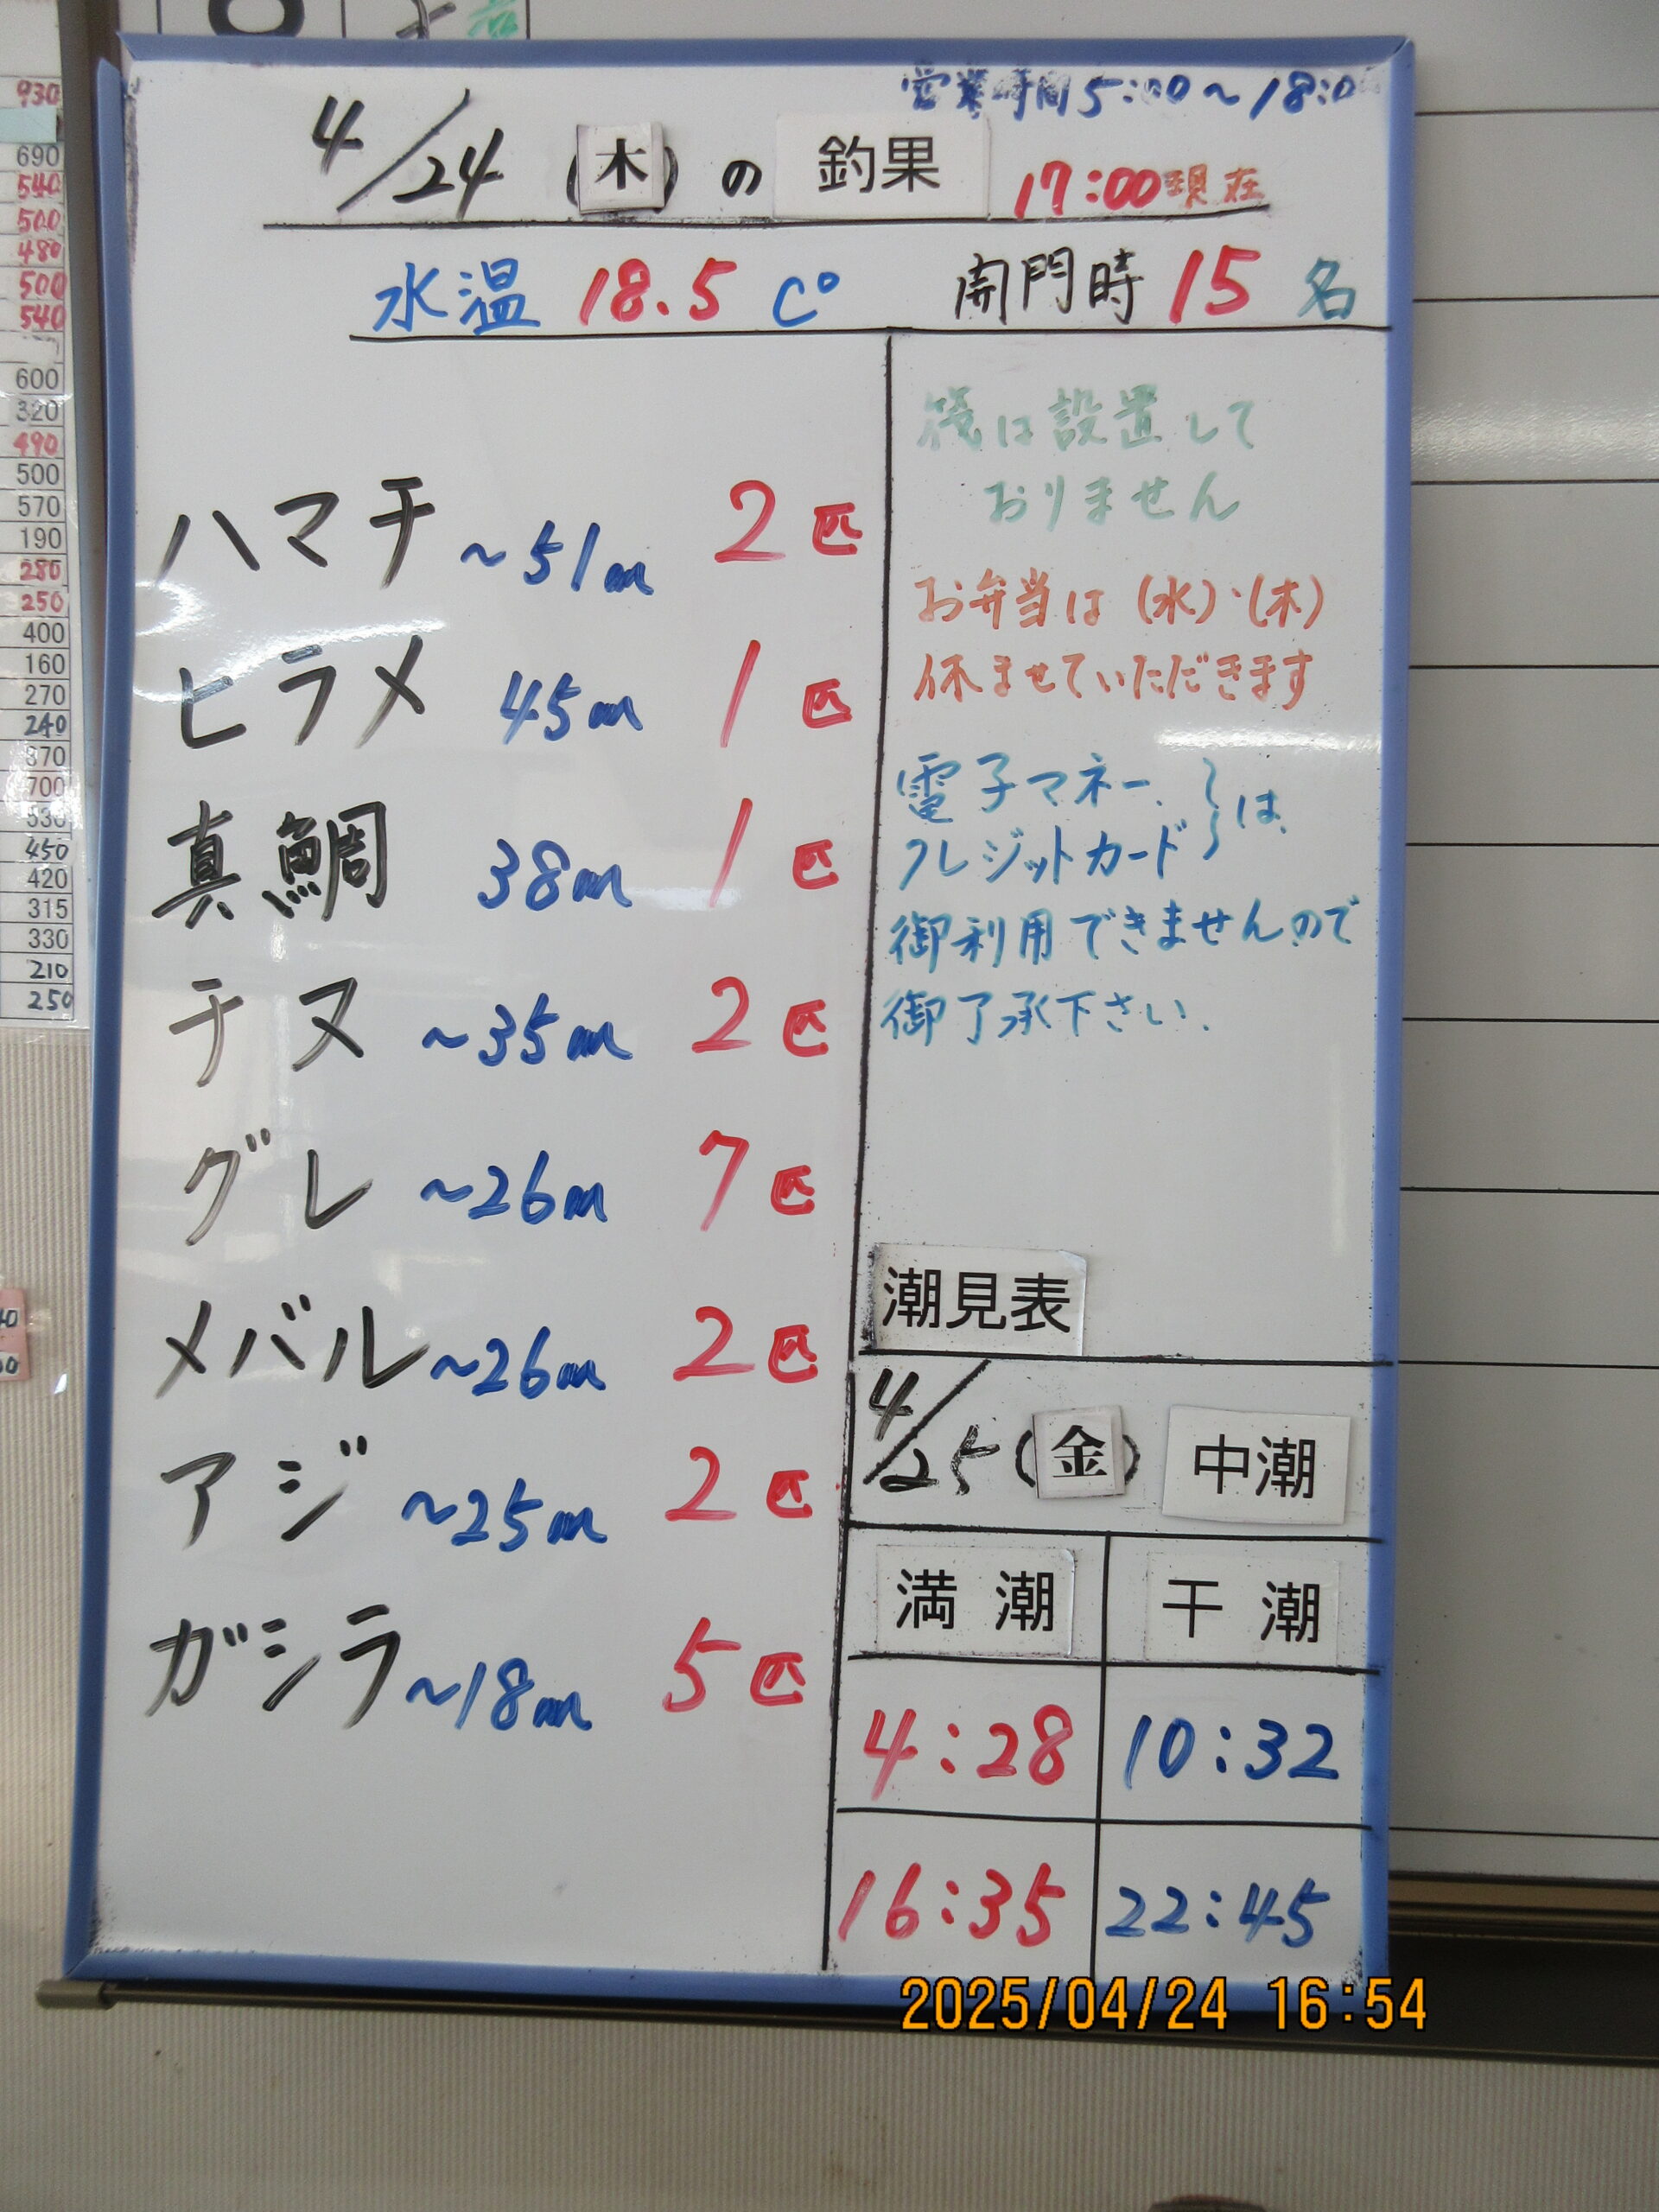 営業時間5:00～18:0
4/24 (木) の 釣果 17:00現在
水温 18.5 C° 開門時 15 名
ハマチ ～51㎝ 2匹
ヒラメ 45㎝ 1匹
真鯛 38㎝ 1匹
チヌ ～35㎝ 2匹
グレ ～26㎝ 7匹
メバル ～26㎝ 2匹
アジ ～25㎝ 2匹
ガシラ ～18㎝ 5匹
筏は設置して
おりません
お弁当は(水)・(木)
休ませていただきます
電子マネー、
クレジットカード は、
御利用できませんので
御了承下さい.
潮見表
4/25 (金) 中潮
満潮 干潮
4:28 10:32
16:35 22:45
930
690
540
500
480
500
540
600
320
490
500
570
190
280
250
400
160
270
240
370
700
530
450
420
315
330
210
250
2025/04/24 16:54